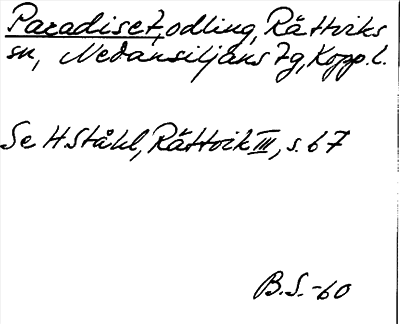 Paradiset, odling, Rättviks
sn, Nedansiljans tg, Kopp. l.
Se H Ståhl, Rättvik III, s. 67
B.S. -60